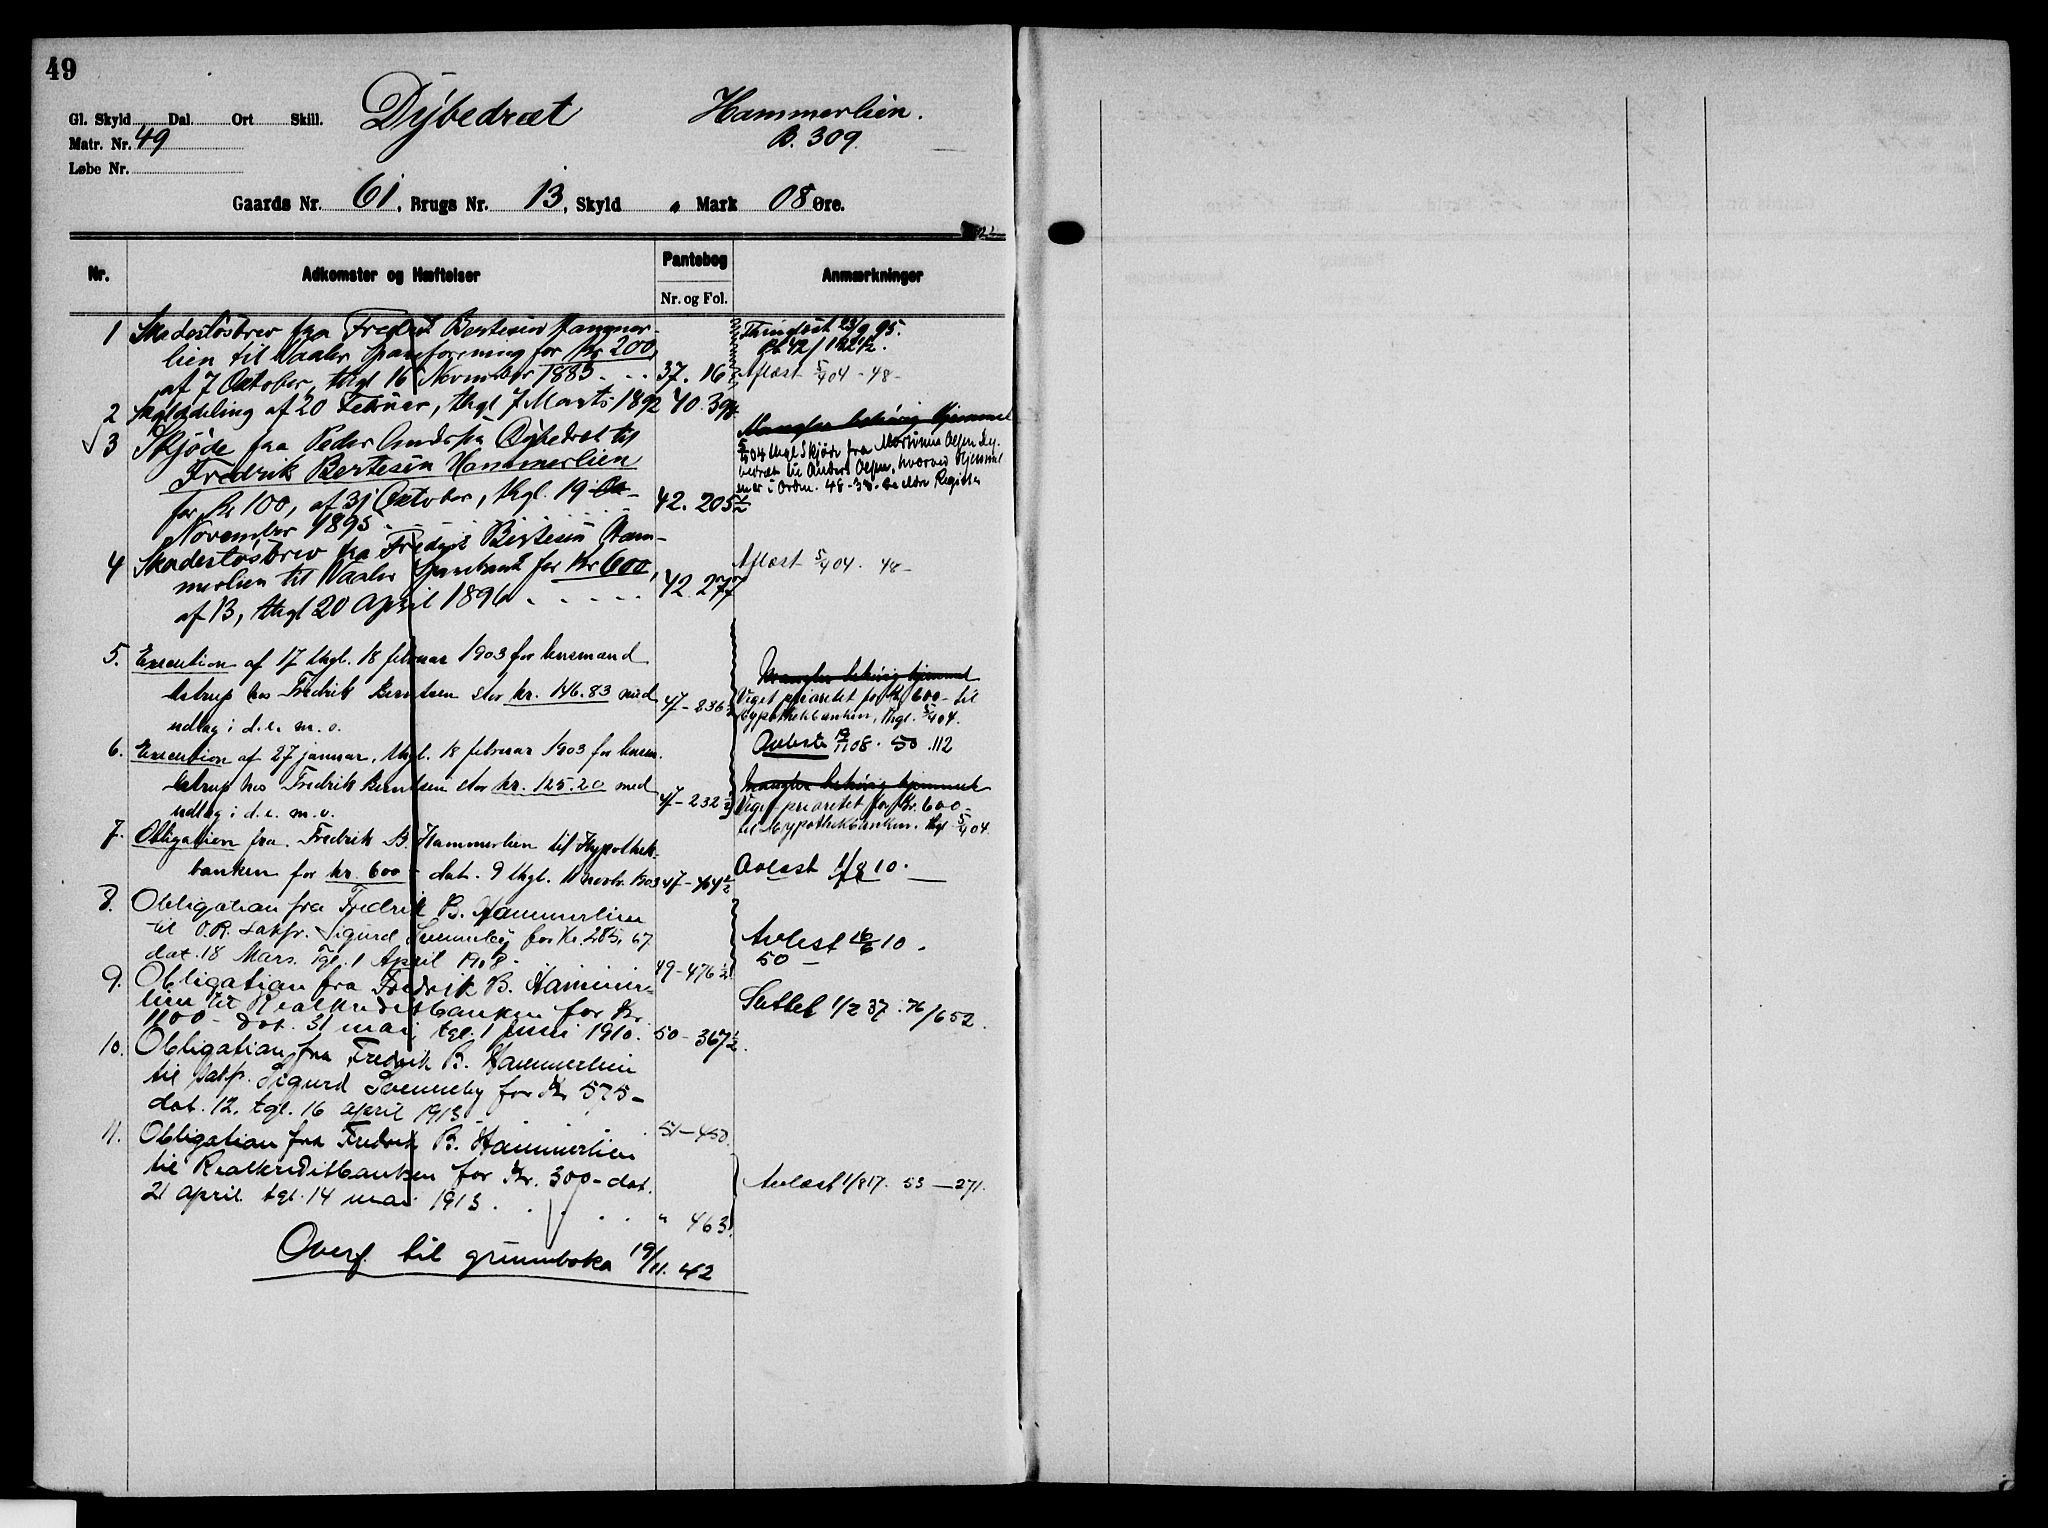 49
Gl. Skyld Dal. Ort Skill. Dybedræt Hammerlien.
Matr. Nr. 49 B. 309.
Løbe Nr.
Gaards Nr. 61, Brugs Nr. 13, Skyld Mark 08 Øre.
Nr. Adkomster og Hæftelser Pantebog Anmærkninger
Nr. og Fol.
1 Skadesløsbrev fra Fredrik Bertesen Hammer-
lien til Vaaler Spareforening for Kr 200,
af 7 Oktober, thgl 16 November 1885 37. 16
23/9 95.
Pb 42/182½.
Aflæst 5/4 04 - 48 -
2 Skylddeling af 20 Februar, thgl 7 Marts 1892 40. 398.
3 Skjøde fra Peder Dybedræt til
Fredrik Bertesen Hammerlien
for Kr 100, af 31 Oktober, thgl. 19 Ok-
November 1895. 42. 205½
Mangler behørig hjemmel
5/4 04 thgl Skjøde fra Martinus Olsen Dy-
bedræt til Anders Olsen, hvorved Hjemmel
en er i Orden. 48-38. ældre Register
4 Skadesløsbrev fra Fredrik Bertesen Ham-
merlien til Vaaler Sparebank for Kr 600,
af 13, thgl 20 April 1896 42. 277
Aflæst 5/4 04. 48 -
5. Execution af 17 thgl. 18 februar 1903 for lensmand
Astrup hos Fredrik Berntsen stor kr. 146.83 med
udlæg i d. e. m. v. 47-236½
Mangler behørig hjemmel
Veget prioritet for Kr 600 - til
Hypothekbanken, thgl. 5/4 04.
Avlæst 08. 50. 112
6. Execution af 27 januar, thgl. 18 februar 1903 for lensm.
Astrup hos Fredrik Berntsen stor kr. 125.20 med
udlæg i d. e. m. v. 47-232½
Mangler behørig hjemmel
Veget prioritet for Kr. 600 -
til Hypothekbanken. thgl 5/4 04.
7. Obligation fra Fredrik B. Hammerlien til Hypothek-
banken for kr. 600 - dat. 9 thgl. 11 novbr. 1903 47-464½
Avlæst 1/8 10.
8. Obligation fra Fredrik B. Hammerlien
til O.R. sakfr. Sigurd Svenneby for Kr. 285,67
dat. 18 Mars. Tgl. 1 April 1908. 49-476½
Avlæst 16/6 10.
50 -
9. Obligation fra Fredrik B. Hammer-
lien til Realkreditbanken for Kr.
1100 - Dat. 31 mai, tgl. 1 juni 1910. 50-367½.
Slettet 1/2 37. 76/652.
10. Obligation fra Fredrik B. Hammerlien
til sakf. Sigurd Svenneby for Kr 575 -
dat. 12. tgl. 16 april 1913. 51-450.
11. Obligation fra Fredrik B. Hammerlien
til Realkreditbanken for Kr. 300 - dat.
21 april tgl. 14 mai 1913. " 463.
Avlæst 1/8 17. 53 - 271.
Overf. til grunnboka 19/11. 42